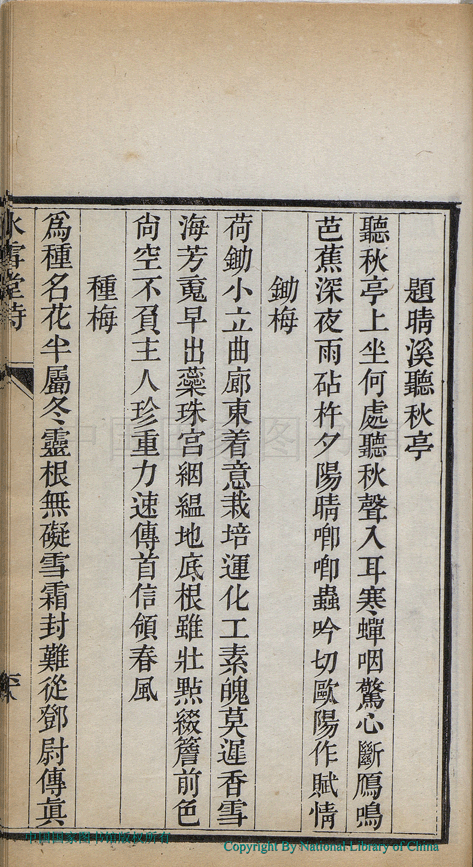 題晴溪聽秋亭
聽秋亭上坐何處聽秋聲入耳寒蟬咽驚心斷鴈鳴
芭蕉深夜雨砧杵夕陽晴喞喞蟲吟切歐陽作賦情
鋤梅
荷鋤小立曲廊東着意栽培運化工素魄莫遲香雪
海芳䰟早出蘂珠宮絪縕地底根雖壯點綴簷前色
尙空不負主人珍重力速傳首信領春風
種梅
爲種名花半屬冬靈根無礙雪霜封難從鄧尉傳眞
冰雪堂詩
中国国家图书馆
中国国家图书馆版权所有
Copyright By National Library of China